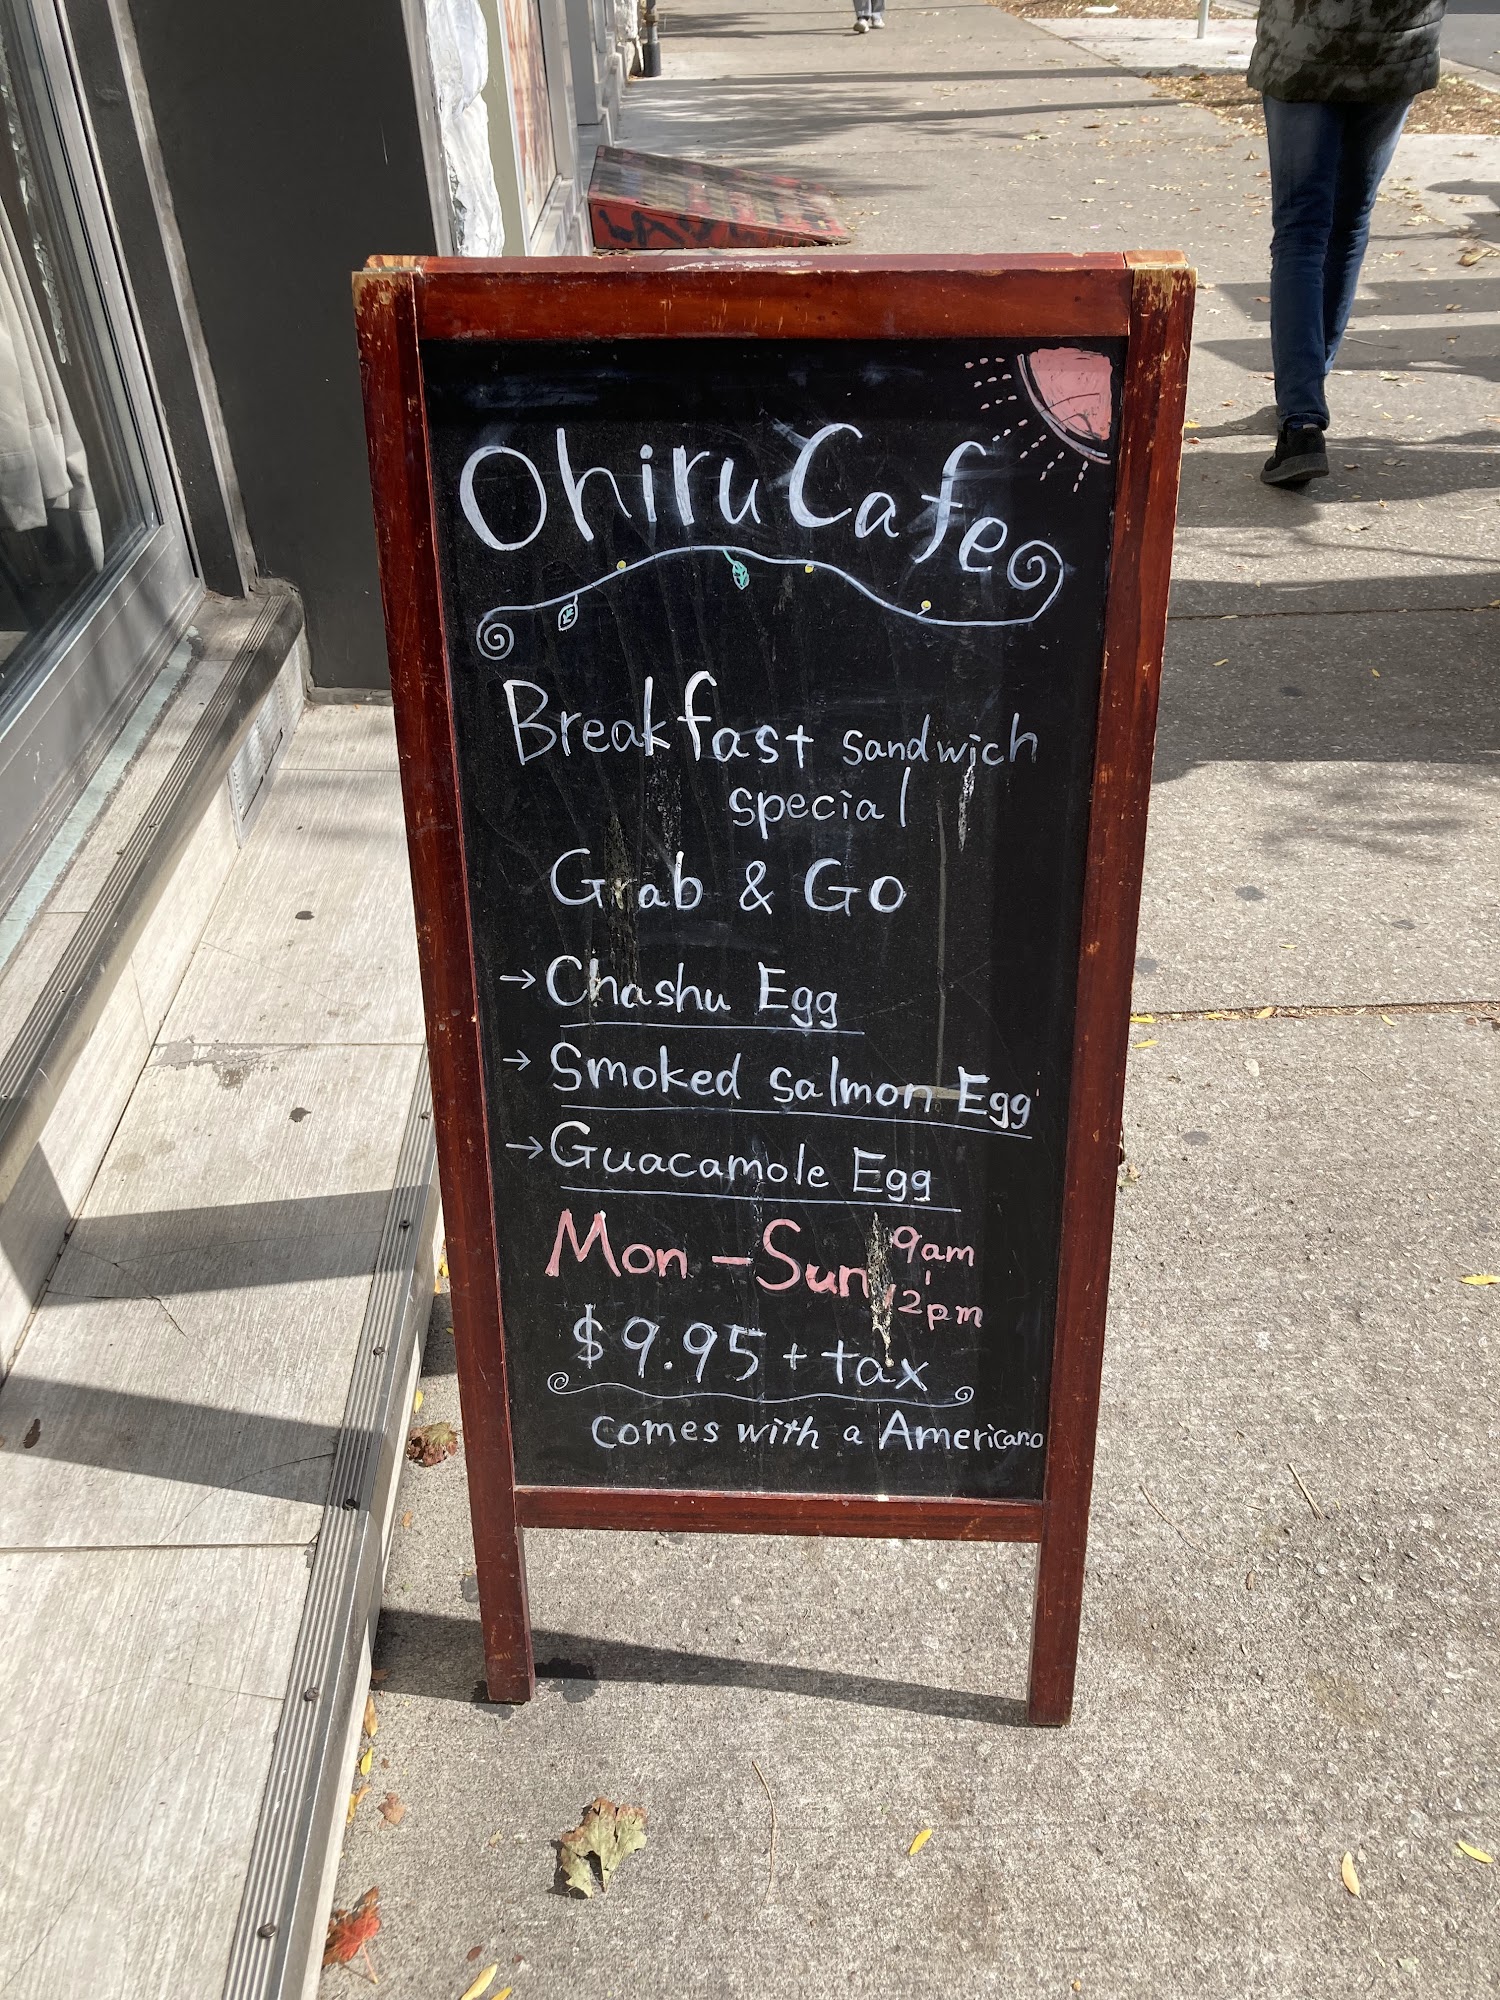 Ohiru Cafe
Breakfast sandwich
special
Grab & GO
→ Chashu Egg
→ Smoked salmon Egg
→ Guacamole Egg
Mon - Sun 9am
-
12pm
$9.95 + tax
comes with a Americano